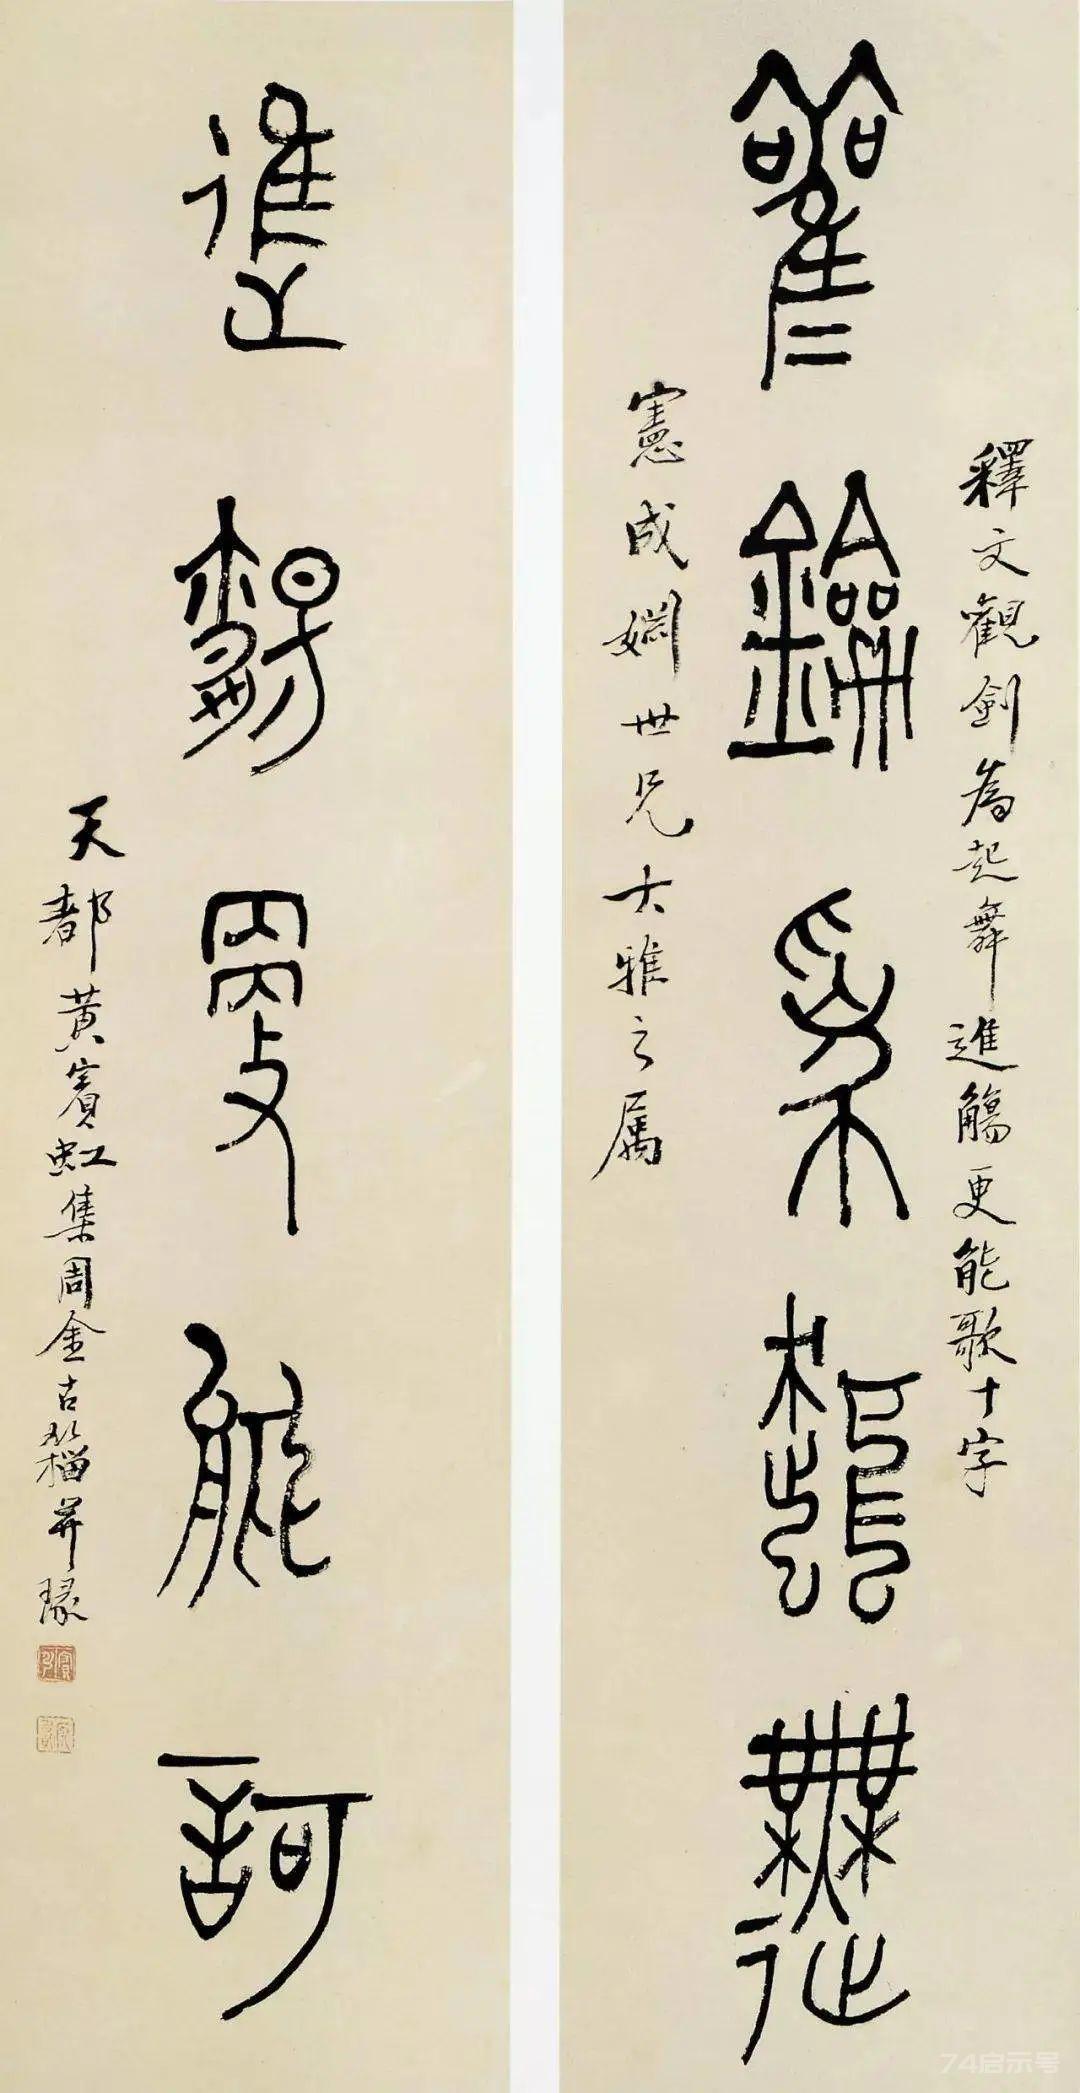 釋文觀劍為起舞進觴更能歌十字
觀劍為起舞
憲成嫻世兄大雅之屬
進觴更能歌
天都黃賓虹集周金古籀并琢
74启示号